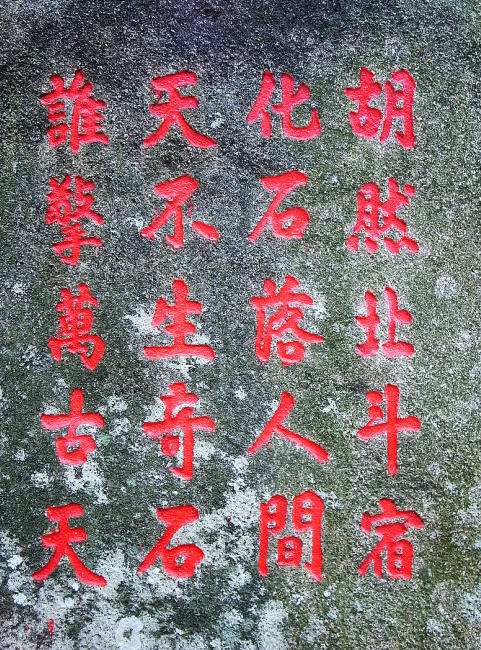 胡然北斗宿
化石落人間
天不生奇石
誰擎萬古天